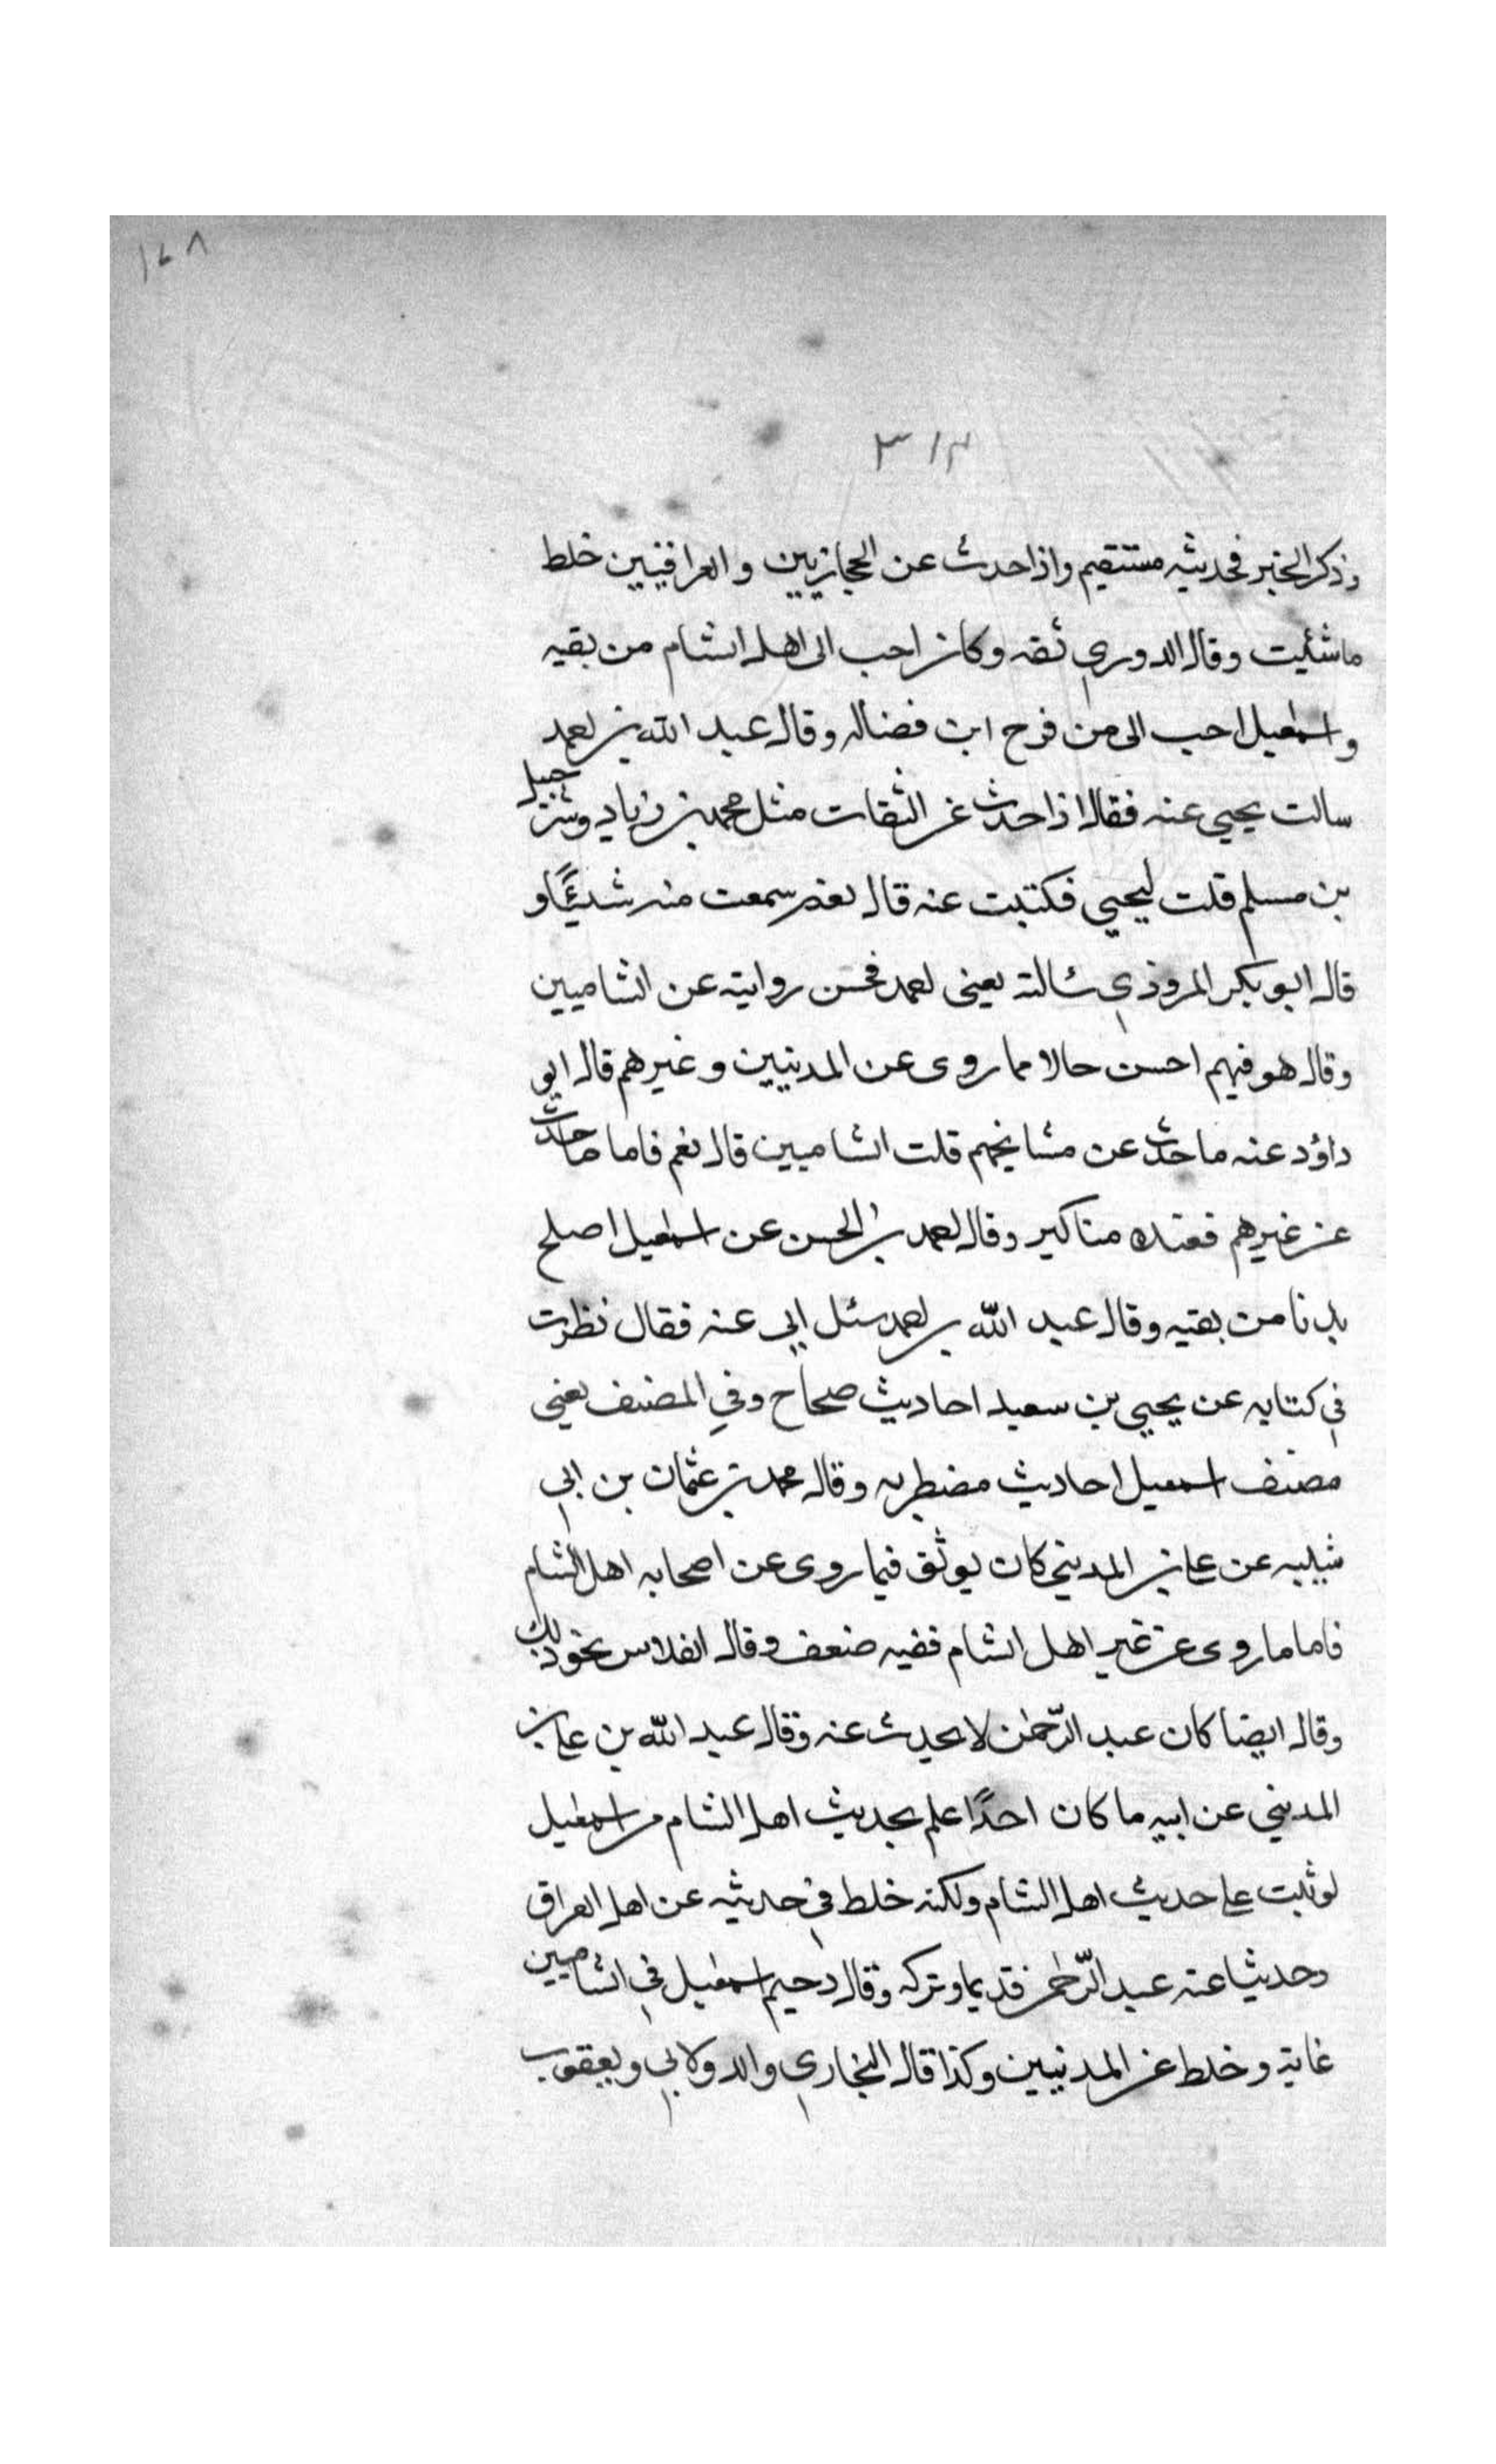 ١٤٨
٣١٢
وذكر الخبر فحديثه مستقيم واذا حدث عن الحجازيين والعراقيين خلط
ما شئت وقال الدوري ثقه وكان احب الى اهل الشام من بقيه
واسمعيل احب الى من فرح ابن فضاله وقال عبد الله بن احمد
سالت يحيى عنه فقال اذا حدث عن الثقات مثل محمد بن زياد وشرحبيل
بن مسلم قلت ليحيى فكتبت عنه قال نعم سمعت منه شيئًا و
قال ابو بكر المروذي سالته يعني احمد فحسن روايته عن الشاميين
وقال هو فيهم احسن حالا مما روى عن المدنيين وغيرهم قال ابو
داؤد عنه ما حدث عن مشايخهم قلت الشاميين قال نعم فاما ما حدث
عن غيرهم فعنده مناكير وقال احمد بن الحسن عن اسمعيل اصلح
بدنا من بقيه وقال عبد الله بن احمد سئل ابي عنه فقال نظرت
في كتابه عن يحيى بن سعيد احاديث صحاح وفي المصنف يعني
مصنف اسمعيل احاديث مضطربه وقال محمد بن عثمان بن ابي
شيبه عن علي بن المديني كان يوثق فيما روى عن اصحابه اهل الشام
فاما ما روى عن غير اهل الشام ففيه ضعف وقال الفلاس نحو ذلك
وقال ايضا كان عبد الرّحمٰن لا يحدث عنه وقال عبد الله بن علي بن
المديني عن ابيه ما كان احدًا اعلم بحديث اهل الشام من اسمعيل
لو ثبت على حديث اهل الشام ولكنه خلط في حديثه عن اهل العراق
وحديثا عنه عبد الرّحمٰن قديما وتركه وقال دحيم اسمعيل في الشاميين
غاية وخلط عن المدنيين وكذا قال البخاري والدولابي ويعقوب